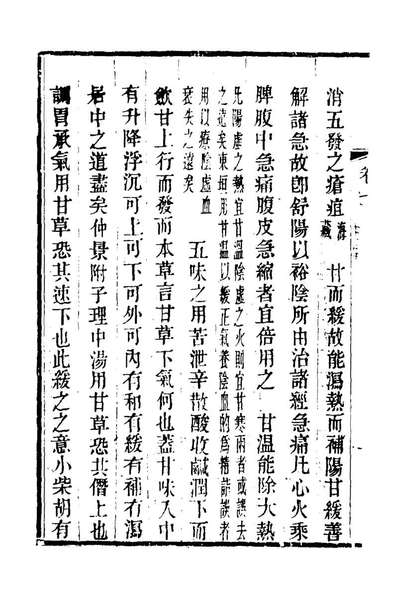 消五發之瘡疽 海藏 甘而緩故能瀉熱而補陽甘緩善
解諸急故卽舒陽以裕陰所由治諸經急痛凡心火乘
脾腹中急痛腹皮急縮者宜倍用之 甘溫能除大熱
凡陽虛之熱宜甘溫陰虛之火則宜甘寒兩者或誤去
之遠矣東垣用甘溫以緩正氣養陰血的為精詣誤者
用以療陰虛血
衰失之遠矣
五味之用苦泄辛散酸收鹹潤下而
歛甘上行而發而本草言甘草下氣何也蓋甘味入中
有升降浮沉可上可下可外可內有和有緩有補有瀉
居中之道盡矣仲景附子理中湯用甘草恐其僭上也
調胃承氣用甘草恐其速下也此緩之之意小柴胡有